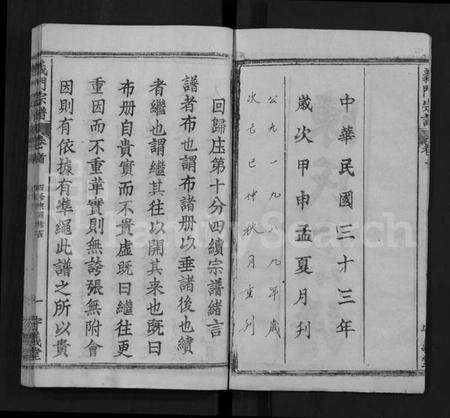 義門宗譜
中華民國三十三年
歲次甲申孟夏月刋
公元一九八九年歲
次己巳仲秋月重刋
回歸庄第十分四續宗譜緒言
譜者布也謂布諸册以垂諸後也續
者繼也謂繼其往以開其來也既曰
布册自貴實而不貴虛既曰繼往更
重因而不重革實則無誇張無附會
因則有依據有準繩此譜之所以貴
義門宗譜 卷首 一 義堂
Search